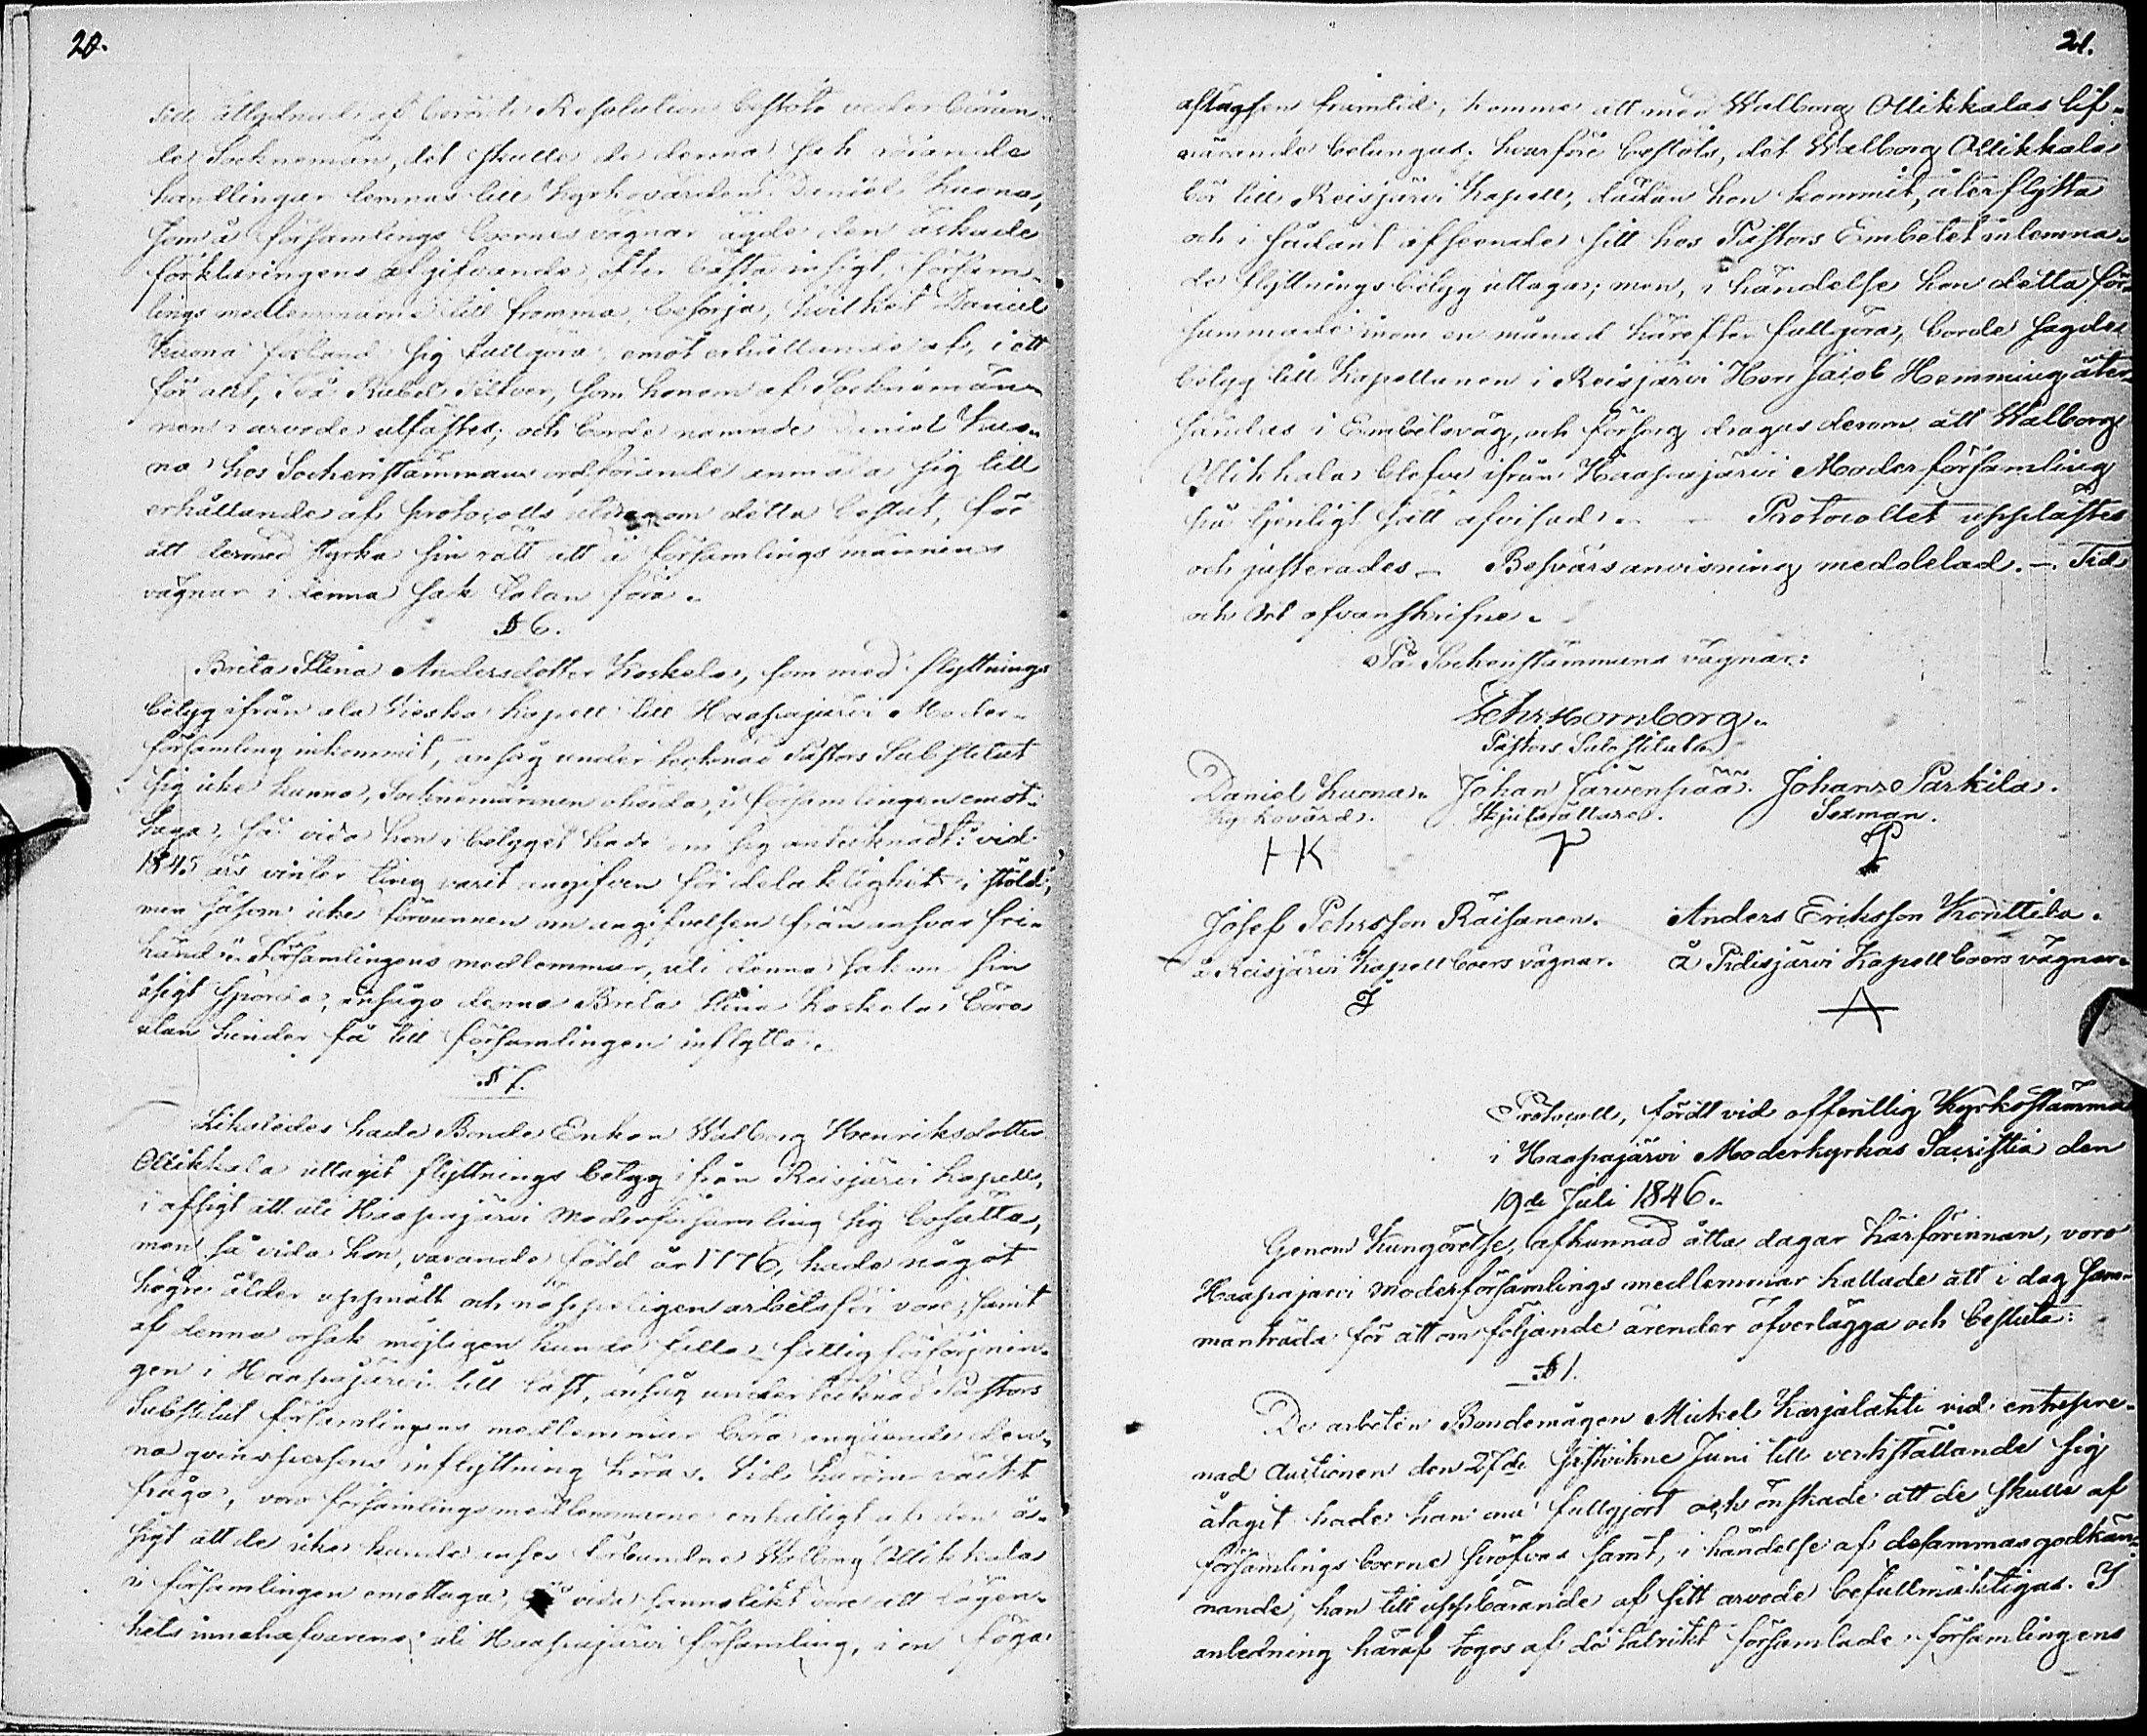 20.
till åtlydnad af berörde Resolution beslöto vederböran-
de Sockenmän, det skulle de denna sak rörande
handlingar lemnas till Kyrkovärden Daniel Kuona,
som å församlings boernes vägnar ägde den äskade
förklaringens afgifvande, efter bästa insigt, försam-
lings medlemmarne till fromma, besörja, hvilket Daniel
Kuona förband sig fullgöra, emot erhållande af, i ett
för allt, Två Rubel Silfver, som honom af Sockenemän-
nen i arvode utfästes; och borde nämnde Daniel Kuo-
na hos Sockenstämmans ordförande anmäla sig till
erhållande af Protocolls utdrag om detta beslut, för
att dermed styrka sin rätt att å församlings männens
vägnar i denna sak talan föra.
§ 6.
Brita Stina Andersdotter Koskela, som med flyttnings
betyg ifrån ala Vieska Kapell till Haapajärvi Moder-
församling inkommit, ansåg undertecknad Pastors Substitut
sig icke kunna, Socknemännen ohörda, i församlingen emot-
taga, så vida hon i betyget hade om sig antecknadt: vid
1845 års vinter ting varit angifven för delaktighet i stöld;
men såsom icke förvunnen om angifvelsen från ansvar fri-
känd. Församlingens medlemmar, uti denna sak om sin
åsigt sporda, ansågo denna Brita Stina Koskela böra
utan hinder få till församlingen inflytta.
§ 7.
Likaledes hade Bonde Enkan Walborg Henriksdotter
Ollikkala uttagit flyttnings betyg ifrån Reisjärvi Kapell,
i afsigt att uti Haapajärvi Moderförsamling sig bosätta,
men så vida hon, varande född år 1776, hade något
högre ålder uppnått och nöppeligen arbetsför vore, samt
af denna orsak möjligen kunde falla fattigförsörjnin-
gen i Haapajärvi till last, ansåg undertecknad Pastors
Substitut församlingens medlemmar böra angående den-
na qvinspersons inflyttning höras. Vid härom väckt
fråga, voro församlingsmedlemmarne enhälligt af den å-
sigt att de icke kunde anses förbundne Walborg Ollikkala
i församlingen emottaga, så vida sannolikt vore att lägen-
hets innehafvarena uti Haapajärvi församling, i en föga
21.
aflägsen framtid, komme att med Walborg Ollikkalas lif-
närande betungas; hvarföre beslöts, det Walborg Ollikkala
bör till Reisjärvi Kapell, dädan hon kommit, återflytta
och i sådant afseende sitt hos Pastors Embetet inlemna-
de flyttningsbetyg uttaga; men, i händelse hon detta för-
summade inom en månad härefter fullgöra, borde sagde
betyg till Kapellanen i Reisjärvi Herr Jacob Hemming åter-
sändas i Embetsväg, och försorg dragas derom att Walborg
Ollikkala blefve ifrån Haapajärvi Moderförsamling
på tjenligt sätt afvisad. — Protocollet upplästes
och justerades — Besvärsanvisning meddelad. — Tid
och Ort ofvanskrifne.
På Sockenstämmans vägnar:
Zchr. Hornborg.
Pastors Substitut.
Daniel Kuona. Johan Järvenpää. Johan Parkila.
Kyrkovärd. Skjutsrättare. Sexman.
HK
Josef Pehrsson Räisänen. Anders Eriksson Konttila.
å Reisjärvi Kapellboers vägnar. å Pidisjärvi Kapellboers vägnar.
J A
Protocoll, fördt vid offentlig Kyrkostämma
i Haapajärvi Moderkyrkas Sacristia den
19de Juli 1846.
Genom Kungörelse, afkunnad åtta dagar härförinnan, voro
Haapajärvi Moderförsamlings medlemmar kallade att i dag sam-
manträda för att om följande ärender öfverlägga och besluta:
§ 1.
De arbeten Bondemågen Mickel Karjalahti vid entrepre-
nad Auctionen den 27de sistvikne Juni till verkställande sig
åtagit hade han nu fullgjort och önskade att de skulle af
församlings boerne pröfvas samt, i händelse af desammas godkän-
nande, han till uppbärande af sitt arvode befullmäktigas. I
anledning häraf togos af de talrikt församlade församlingens